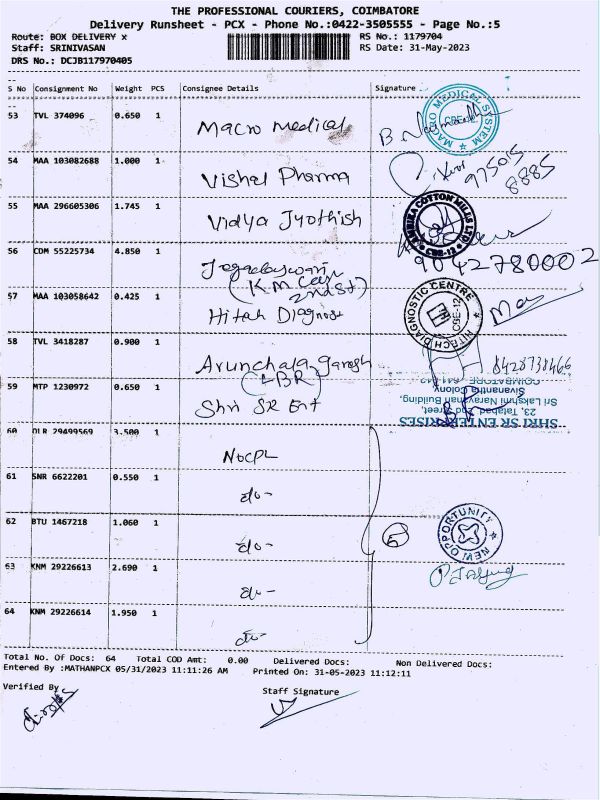 THE PROFESSIONAL COURIERS, COIMBATORE
Delivery Runsheet - PCX - Phone No.:0422-3505555 - Page No.:5
Route: BOX DELIVERY x
RS No.: 1179704
Staff: SRINIVASAN
RS Date: 31-May-2023
DRS No.: DCJB117970405
S No Consignment No Weight PCS Consignee Details Signature
53 TVL 374096 0.650 1 Macro Medical
MACRO MEDICAL SYSTEM
CBE
54 MAA 103082688 1.000 1 Vishal Pharma
97501 5
8885
55 MAA 296605306 1.745 1 Vidya Jyothish
COTTON MILLS LTD
CBE-12
56 COM 55225734 4.850 1
(K M Cey
2nd St)
9042780002
57 MAA 103058642 0.425 1 Hitah Diagnost
HITACH DIAGNOSTIC CENTRE
CBE-12
58 TVL 3418287 0.900 1 Arunchala Ganesh
(LBR)
8428738466
59 MTP 1230972 0.650 1 Shri SR Ent
SHRI SR ENTERPRISES
23, Tatabad 2nd Street,
Sri Lakshmi Narayanan Building,
Sivanantha Colony
COIMBATORE - 641 012
60 DLR 29499569 3.500 1 NOCPL
61 SNR 6622201 0.550 1 do-
62 BTU 1467218 1.060 1 do-
5
NEW OPPORTUNITY
63 KNM 29226613 2.690 1 do-
64 KNM 29226614 1.950 1 do-
Total No. Of Docs: 64 Total COD Amt: 0.00 Delivered Docs: Non Delivered Docs:
Entered By :MATHANPCX 05/31/2023 11:11:26 AM Printed On: 31-05-2023 11:12:11
Verified By
Staff Signature